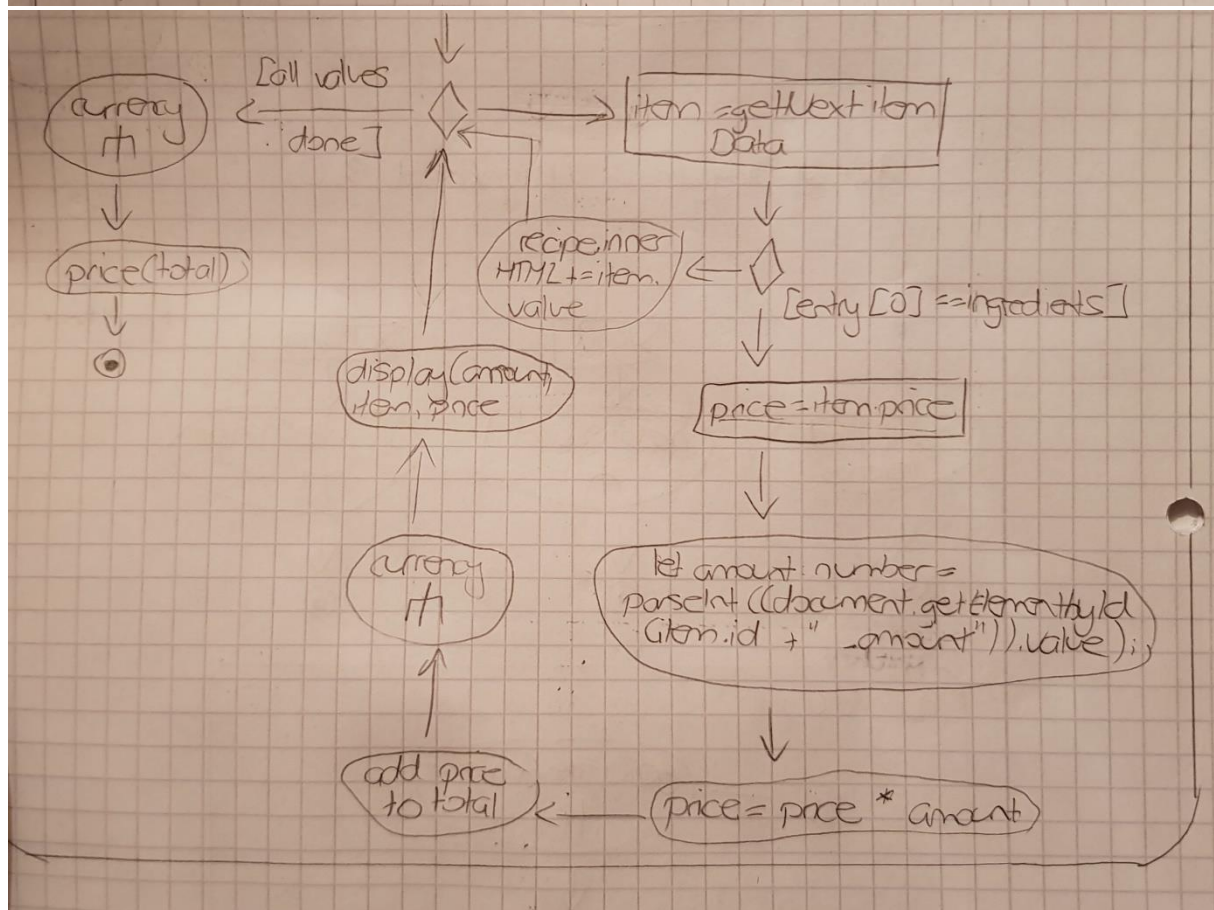 [all values
done]
currency
price(total)
item =getNext item
Data
recipe.inner
HTML +=item.
value
[entry [0] ==ingredients]
display(amount,
item, price
price=item.price
currency
let amount: number =
parseInt ((document.getElementbyId
(item.id + "_amount")).value);
add price
to total
price= price * amount